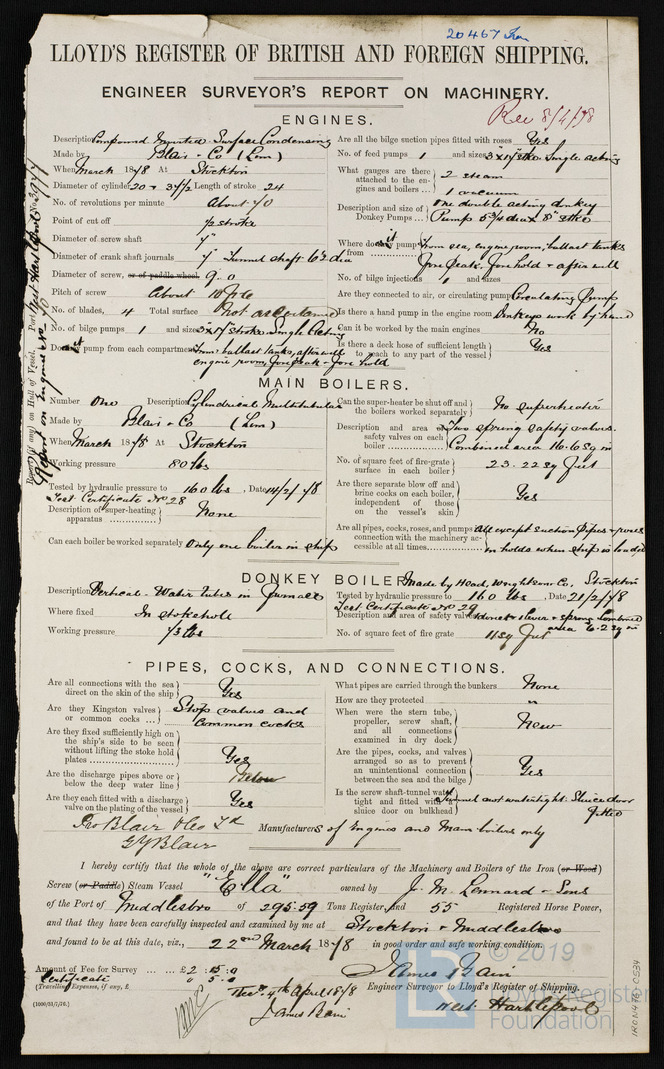 20467 Iron
LLOYD'S REGISTER OF BRITISH AND FOREIGN SHIPPING.
ENGINEER SURVEYOR'S REPORT ON MACHINERY.
Rec 8/4/78
ENGINES.
Description Compound Inverted Surface Condensing
Made by Blair & Co (Lim)
When March 1878 At Stockton
Diameter of cylinder 20 & 37 1/2 Length of stroke 24
No. of revolutions per minute About 70
Point of cut off 1/2 stroke
Diameter of screw shaft 7"
Diameter of crank shaft journals 7" Tunnel shaft 6 1/2 dia
Diameter of screw, or of paddle wheel 9.0
Pitch of screw About
No. of blades, 4 Total surface Not ascertained
No. of bilge pumps 1 and sizes stroke Single Acting
Does it pump from each compartment From ballast tanks, after well
engine room, fore peak & fore hold
Are all the bilge suction pipes fitted with roses Yes
No. of feed pumps 1 and sizes stke Single acting
What gauges are there attached to the engines and boilers ... 2 steam
1 vacuum
Description and size of Donkey Pumps ... One double acting donkey
Pump 5 3/4 dia x 8" stke
Where does it pump from From sea, engine room, ballast tanks
fore peak, fore hold & after well
No. of bilge injections 1 and sizes
Are they connected to air, or circulating pump Circulating Pump
Is there a hand pump in the engine room Donkeys work by hand
Can it be worked by the main engines No
Is there a deck hose of sufficient length to reach to any part of the vessel Yes
Port West Hartlepool No 3977
Report (if any) on Hull of Vessel.
Report on Engines No
MAIN BOILERS.
Number One Description Cylindrical Multitubular
Made by Blair & Co (Lim)
When March 1878 At Stockton
Working pressure 80 lbs
Tested by hydraulic pressure to 160 lbs, Date 14/2/78
Test Certificate No 28
Description of super-heating apparatus None
Can each boiler be worked separately Only one boiler in ship
Can the super-heater be shut off and the boilers worked separately No superheater
Description and area of safety valves on each boiler Two spring safety valves.
Combined area 16.6 sq in
No. of square feet of fire-grate surface in each boiler 23.22 sq feet
Are there separate blow off and brine cocks on each boiler, independent of those on the vessel's skin Yes
Are all pipes, cocks, roses, and pumps in connection with the machinery accessible at all times All except suction pipes & roses
in holds when ship is loaded
DONKEY BOILER. Made by Head, Wrightson & Co. Stockton
Description Vertical - Water tubes in furnace
Where fixed In stokehole
Working pressure 75 lbs
Tested by hydraulic pressure to 160 lbs, Date 21/2/78
Test Certificate No 29
Description and area of safety valves direct & lever & spring combined
area 6.2 sq in
No. of square feet of fire grate 11 sq feet
PIPES, COCKS, AND CONNECTIONS.
Are all connections with the sea direct on the skin of the ship Yes
Are they Kingston valves or common cocks ... Stop valves and
Common cocks
Are they fixed sufficiently high on the ship's side to be seen without lifting the stoke hold plates Yes
Are the discharge pipes above or below the deep water line Below
Are they each fitted with a discharge valve on the plating of the vessel Yes
What pipes are carried through the bunkers None
How are they protected "
When were the stern tube, propeller, screw shaft, and all connections examined in dry dock New
Are the pipes, cocks, and valves arranged so as to prevent an unintentional connection between the sea and the bilge Yes
Is the screw shaft-tunnel water tight and fitted with a sluice door on bulkhead Tunnel not watertight. Sluice door
fitted
Pro Blair & Co Ld
G Y Blair
Manufacturers of Engines and Main boilers only
I hereby certify that the whole of the above are correct particulars of the Machinery and Boilers of the Iron (or Wood)
Screw (or Paddle) Steam Vessel "Ella" owned by J. M. Lennard & Sons
of the Port of Middlesbro of 295.59 Tons Register, and 55 Registered Horse Power,
and that they have been carefully inspected and examined by me at Stockton & Middlesbro
and found to be at this date, viz., 22nd March 1878 in good order and safe working condition.
Amount of Fee for Survey ... £2 : 15 : 0
Certificate 0 5.0
(Travelling Expenses, if any, £
(1000/31/1/76.)
Recd. 4th April 1878
James Bain
James Bain
Engineer Surveyor to Lloyd's Register of Shipping.
West Hartlepool
IRON476-0534
© 2019
Lloyd's Register
Foundation